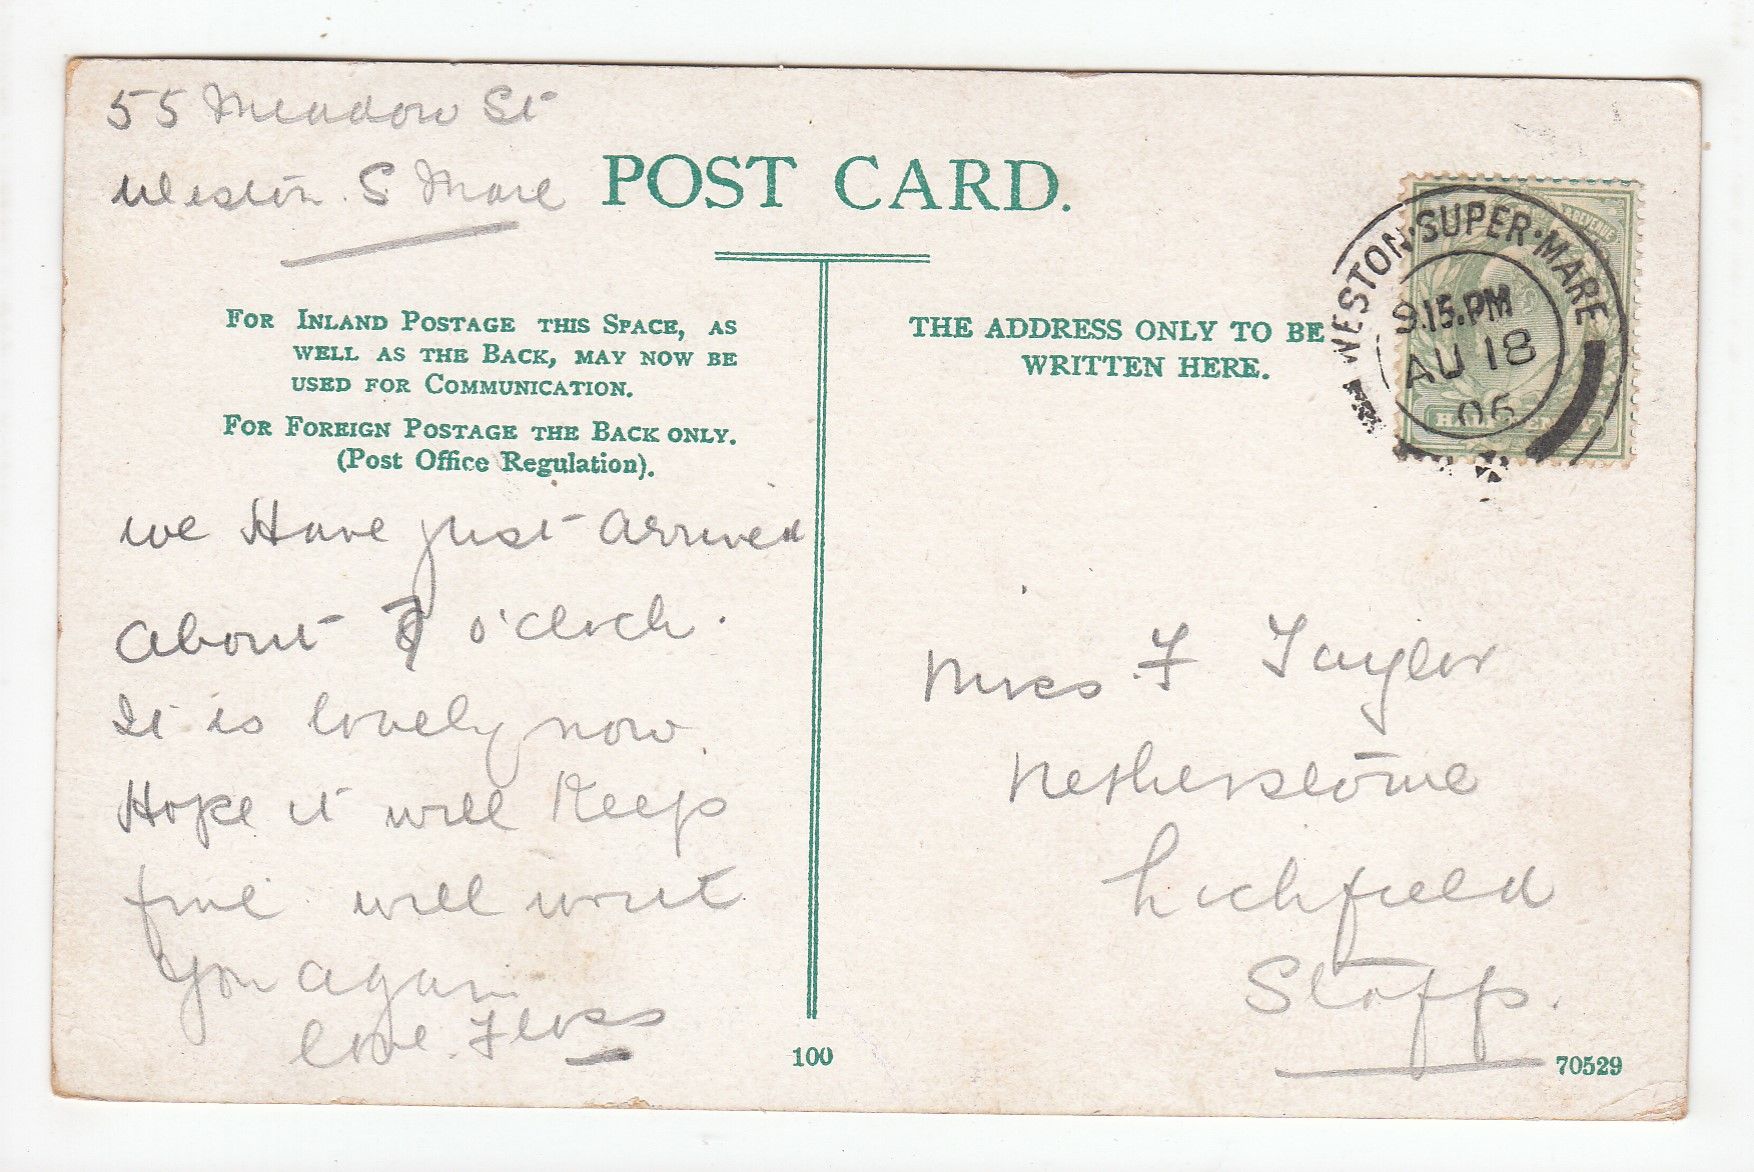 55 Meadow St
Weston. S Mare
POST CARD.
FOR INLAND POSTAGE THIS SPACE, AS
WELL AS THE BACK, MAY NOW BE
USED FOR COMMUNICATION.
FOR FOREIGN POSTAGE THE BACK ONLY.
(Post Office Regulation).
we Have just arrived
about 7 o'clock.
It is lovely now.
Hope it will Keep
fine will write
you again
love. Floss
100
THE ADDRESS ONLY TO BE
WRITTEN HERE.
WESTON·SUPER·MARE
9.15.PM
AU 18
06
REVENUE
HALFPENNY
Miss. F Taylor
Netherstowe
Lichfield
Staffs.
70529